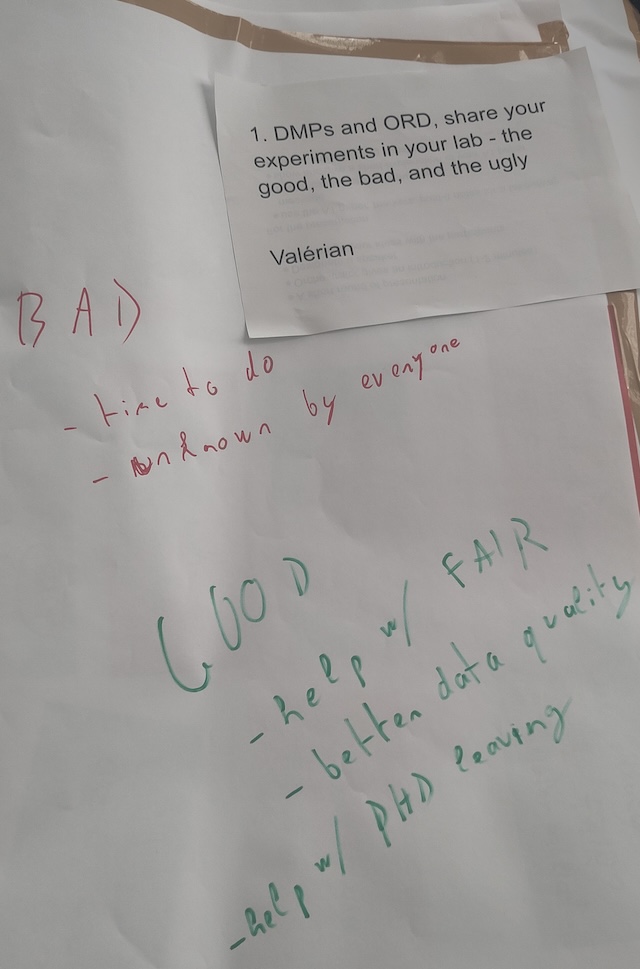 1. DMPs and ORD, share your
experiments in your lab - the
good, the bad, and the ugly
Valérian
BAD
- time to do
- unknown by everyone
GOOD
- help w/ FAIR
- better data quality
- help w/ PHD leaving